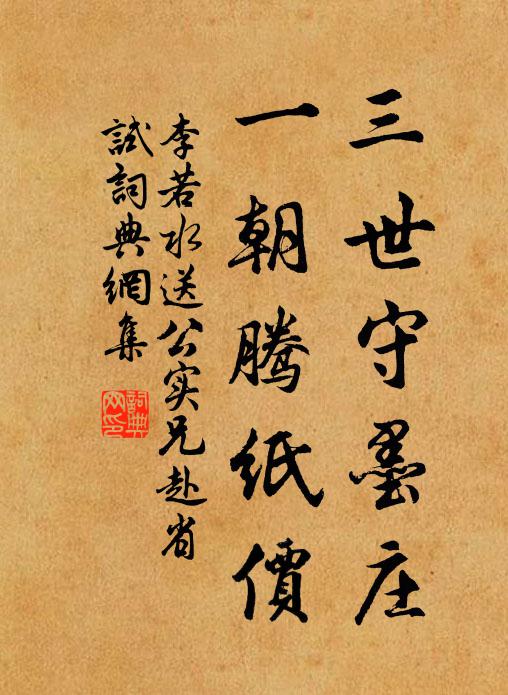 三世守墨庄
一朝腾紙價
李若水送公实兄赴省
試詞典網集
詞典
网印